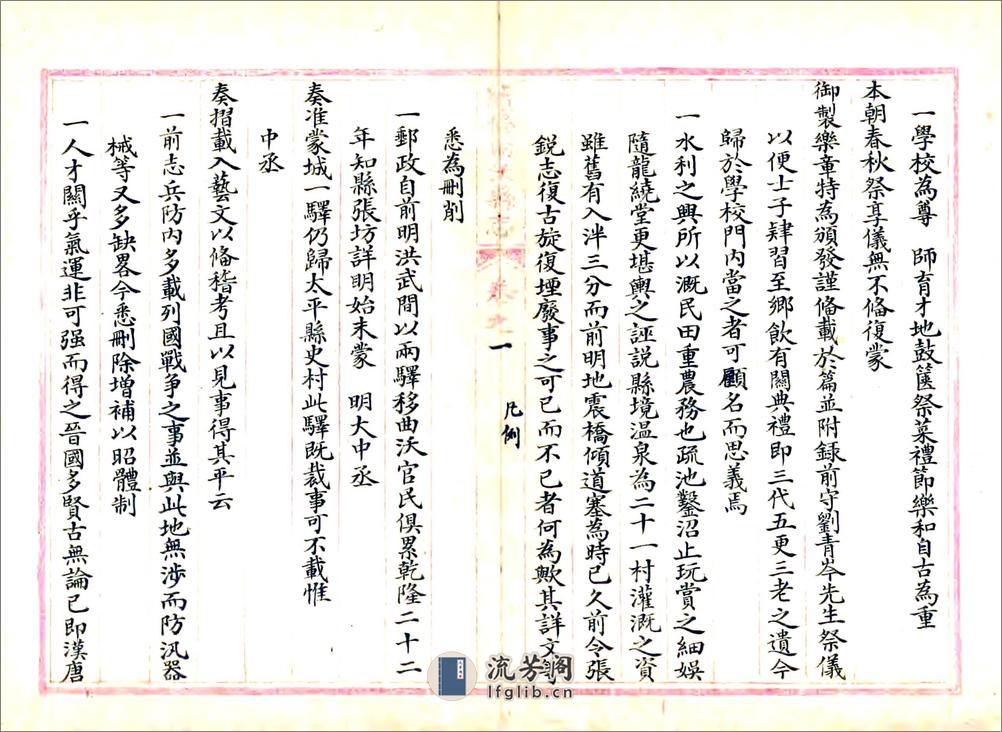 一學校為尊　師育才地鼓篋祭菜禮節樂和自古為重
本朝春秋祭享儀無不脩復蒙
御製樂章特為頒發謹備載於篇並附録前守劉青岑先生祭儀
以便士子肄習至鄉飲有關典禮即三代五更三老之遺今
歸於學校門內當之者可顧名而思義焉
一水利之興所以溉民田重農務也疏池鑿沼止玩賞之細娛
隨龍繞堂更堪輿之誣説縣境温泉為二十一村灌溉之資
雖舊有入泮三分而前明地震橋傾道塞為時已久前令張
鋭志復古旋復堙廢事之可已而不已者何為歟其詳文
卷之一
凡例
悉為刪削
一郵政自前明洪武間以兩驛移曲沃官民俱累乾隆二十二
年知縣張坊詳明始末蒙　明大中丞
奏准蒙城一驛仍歸太平縣史村此驛既裁事可不載惟
中丞
奏摺載入藝文以俻稽考且以見事得其平云
一前志兵防內多載列國戰争之事並與此地無涉而防汛器
械等又多缺畧今悉刪除增補以昭體制
一人才關乎氣運非可强而得之晉國多賢古無論已即漢唐
流芳阁
lfglib.cn